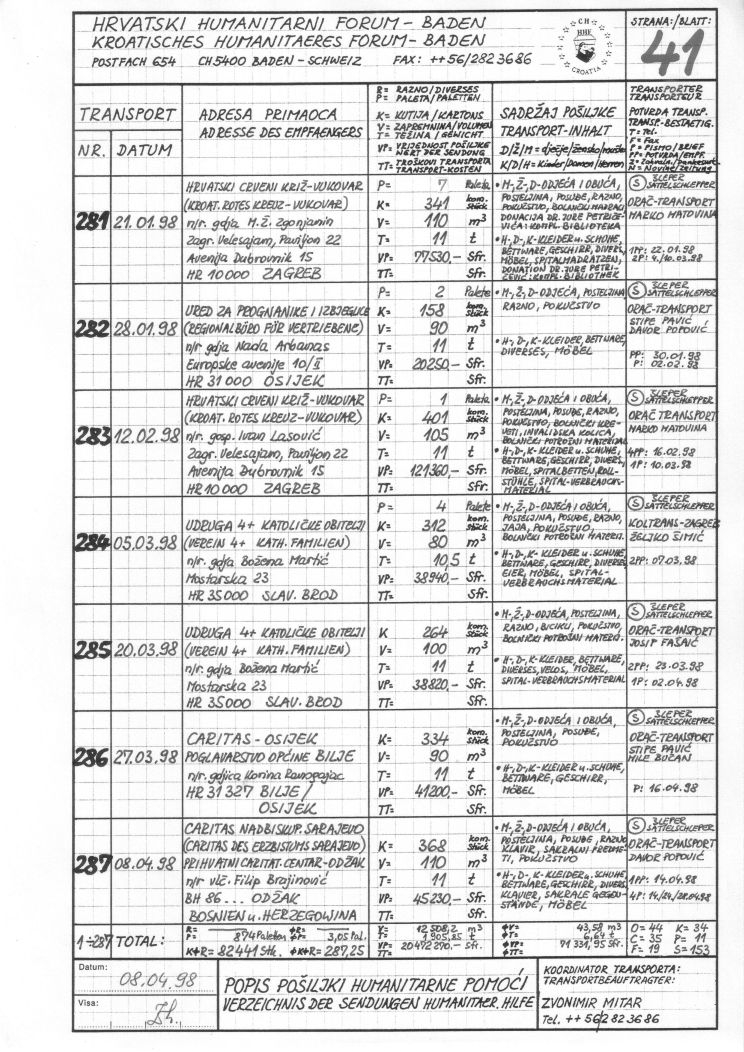 HRVATSKI HUMANITARNI FORUM – BADEN
KROATISCHES HUMANITAERES FORUM – BADEN
POSTFACH 654 CH 5400 BADEN – SCHWEIZ FAX: ++56/282 36 86
CH
HHF
CROATIA
STRANA:/BLATT:
41
TRANSPORT
NR. DATUM
ADRESA PRIMAOCA
ADRESSE DES EMPFAENGERS
R= RAZNO/DIVERSES
P= PALETA/PALETTEN
K= KUTIJA/KARTONS
V= ZAPREMNINA/VOLUMEN
T= TEŽINA/GEWICHT
VP= VRIJEDNOST POŠILJKE
WERT DER SENDUNG
TT= TROŠKOVI TRANSPORTA
TRANSPORT-KOSTEN
SADRŽAJ POŠILJKE
TRANSPORT-INHALT
D/Ž/M= dječje/žensko/muško
K/D/H= Kinder/Damen/Herren
TRANSPORTER
TRANSPORTEUR
POTVRDA TRANSP.
TRANSP.-BESTAETIG.
T= Tel.
F= Fax
P= PISMO/BRIEF
PP= POTVRDA/EMPF.
N= Novine/Zeitung
281 21.01.98
HRVATSKI CRVENI KRIŽ-VUKOVAR
(KROAT. ROTES KREUZ-VUKOVAR)
n/r. gdja M.Ž. Zgonjanin
Zagr. Velesajam, Paviljon 22
Avenija Dubrovnik 15
HR 10 000 ZAGREB
P= 7 Paleta
K= 341 kom. Stück
V= 110 m³
T= 11 t
VP= 77530,– Sfr.
TT= Sfr.
• M-, Ž-, D-ODJEĆA I OBUĆA,
POSTELJINA, POSUĐE, RAZNO,
POKUĆSTVO, BOLNIČKI MADRACI
DONACIJA DR. JURE PETRIČE-
VIĆA: KOMPL. BIBLIOTEKA
• H-, D-, K-KLEIDER u. SCHUHE,
BETTWARE, GESCHIRR, DIVERS,
MÖBEL, SPITALMADRATZEN,
DONATION DR. JURE PETRI-
ČEVIĆ: KOMPL. BIBLIOTHEK
(S) ŠLEPER
SATTELSCHLEPPER
ORAČ-TRANSPORT
MARKO MATOVINA
1PP: 22.01.98
2P: 4./10.03.98
282 28.01.98
URED ZA PROGNANIKE I IZBJEGLICE
(REGIONALBÜRO FÜR VERTRIEBENE)
n/r gdja Nada Arbanas
Europske avenije 10/II
HR 31 000 OSIJEK
P= 2 Palete
K= 158 kom. Stück
V= 90 m³
T= 11 t
VP= 20250,– Sfr.
TT= Sfr.
• M-, Ž-, D-ODJEĆA, POSTELJINA
RAZNO, POKUĆSTVO
• H-, D-, K-KLEIDER, BETTWARE,
DIVERSES, MÖBEL
(S) ŠLEPER
SATTELSCHLEPPER
ORAČ-TRANSPORT
STIPE PAVIĆ
DAVOR POPOVIĆ
PP: 30.01.98
P: 02.02.98
283 12.02.98
HRVATSKI CRVENI KRIŽ-VUKOVAR
(KROAT. ROTES KREUZ-VUKOVAR)
n/r. gosp. Ivan Lasović
Zagr. Velesajam, Paviljon 22
Avenija Dubrovnik 15
HR 10 000 ZAGREB
P= 1 Paleta
K= 401 kom. Stück
V= 105 m³
T= 11 t
VP= 121360,– Sfr.
TT= Sfr.
• M-, Ž-, D-ODJEĆA I OBUĆA,
POSTELJINA, POSUĐE, RAZNO,
POKUĆSTVO, BOLNIČKI KRE-
VETI, INVALIDSKA KOLICA,
BOLNIČKI POTROŠNI MATERIJAL
• H-, D-, K-KLEIDER u. SCHUHE,
BETTWARE, GESCHIRR, DIVERS,
MÖBEL, SPITALBETTEN, ROLL-
STÜHLE, SPITAL-VERBRAUCHS-
MATERIAL
(S) ŠLEPER
SATTELSCHLEPPER
ORAČ TRANSPORT
MARKO MATOVINA
4PP: 16.02.98
1P: 10.03.98
284 05.03.98
UDRUGA 4+ KATOLIČKE OBITELJI
(VEREIN 4+ KATH. FAMILIEN)
n/r. gdja Božena Martić
Mostarska 23
HR 35000 SLAV. BROD
P= 4 Palete
K= 312 kom. Stück
V= 80 m³
T= 10,5 t
VP= 38940,– Sfr.
TT= Sfr.
• M-, Ž-, D-ODJEĆA I OBUĆA,
POSTELJINA, POSUĐE, RAZNO,
JAJA, POKUĆSTVO,
BOLNIČKI POTROŠNI MATERIJ.
• H-, D-, K-KLEIDER u. SCHUHE,
BETTWARE, GESCHIRR, DIVERSE
EIER, MÖBEL, SPITAL-
VERBRAUCHSMATERIAL
(S) ŠLEPER
SATTELSCHLEPPER
KOLTRANS-ZAGREB
ŽELJKO ŠIMIĆ
2PP: 07.03.98
285 20.03.98
UDRUGA 4+ KATOLIČKE OBITELJI
(VEREIN 4+ KATH. FAMILIEN)
n/r. gdja Božena Martić
Mostarska 23
HR 35000 SLAV. BROD
K 264 kom. Stück
V= 100 m³
T= 11 t
VP= 38820,– Sfr.
TT= Sfr.
• M-, Ž-, D-ODJEĆA, POSTELJINA,
RAZNO, BICIKLI, POKUĆSTVO,
BOLNIČKI POTROŠNI MATERIJ.
• H-, D-, K-KLEIDER, BETTWARE,
DIVERSES, VELOS, MÖBEL,
SPITAL-VERBRAUCHSMATERIAL
(S) ŠLEPER
SATTELSCHLEPPER
ORAČ-TRANSPORT
JOSIP FAŠAIĆ
2PP: 23.03.98
1P: 02.04.98
286 27.03.98
CARITAS – OSIJEK
POGLAVARSTVO OPĆINE BILJE
n/r. gdjica Korina Ranogajac
HR 31 327 BILJE /
OSIJEK
K= 334 kom. Stück
V= 90 m³
T= 11 t
VP= 41200,– Sfr.
TT= Sfr.
• M-, Ž-, D-ODJEĆA I OBUĆA,
POSTELJINA, POSUĐE,
POKUĆSTVO
• H-, D-, K-KLEIDER u. SCHUHE,
BETTWARE, GESCHIRR,
MÖBEL
(S) ŠLEPER
SATTELSCHLEPPER
ORAČ-TRANSPORT
STIPE PAVIĆ
MILE BUČAN
P: 16.04.98
287 08.04.98
CARITAS NADBISKUP. SARAJEVO
(CARITAS DES ERZBISTUMS SARAJEVO)
PRIHVATNI CARITAT. CENTAR-ODŽAK
n/r vlč. Filip Brajinović
BH 86... ODŽAK
BOSNIEN u. HERZEGOWINA
K= 368 kom. Stück
V= 110 m³
T= 11 t
VP= 45230,– Sfr.
TT= Sfr.
• M-, Ž-, D-ODJEĆA I OBUĆA,
POSTELJINA, POSUĐE, RAZNO
KLAVIR, SAKRALNI PREDME-
TI, POKUĆSTVO
• H-, D-, K-KLEIDER u. SCHUHE,
BETTWARE, GESCHIRR, DIVERS,
KLAVIER, SAKRALE GEGEN-
STÄNDE, MÖBEL
(S) ŠLEPER
SATTELSCHLEPPER
ORAČ-TRANSPORT
DAVOR POPOVIĆ
1PP: 14.04.98
4P: 14./24./28.04.98
1÷287 TOTAL:
R= ϕR=
P= 874 Paletten ϕP= 3,05 Pal.
K+R= 82441 Stk. ϕK+R= 287,25
V= 12508,2 m³
T= 1905,85 t
VP= 20472270,– Sfr.
TT=
ϕV= 43,58 m³
ϕT= 6,64 t
ϕVP= 71331,95 Sfr.
ϕTT=
O= 44 K= 34
C= 35 P= 11
F= 19 S= 153
Datum:
08.04.98
Visa:
POPIS POŠILJKI HUMANITARNE POMOĆI
VERZEICHNIS DER SENDUNGEN HUMANITAER. HILFE
KOORDINATOR TRANSPORTA:
TRANSPORTBEAUFTRAGTER:
ZVONIMIR MITAR
Tel. ++ 56/2 82 36 86